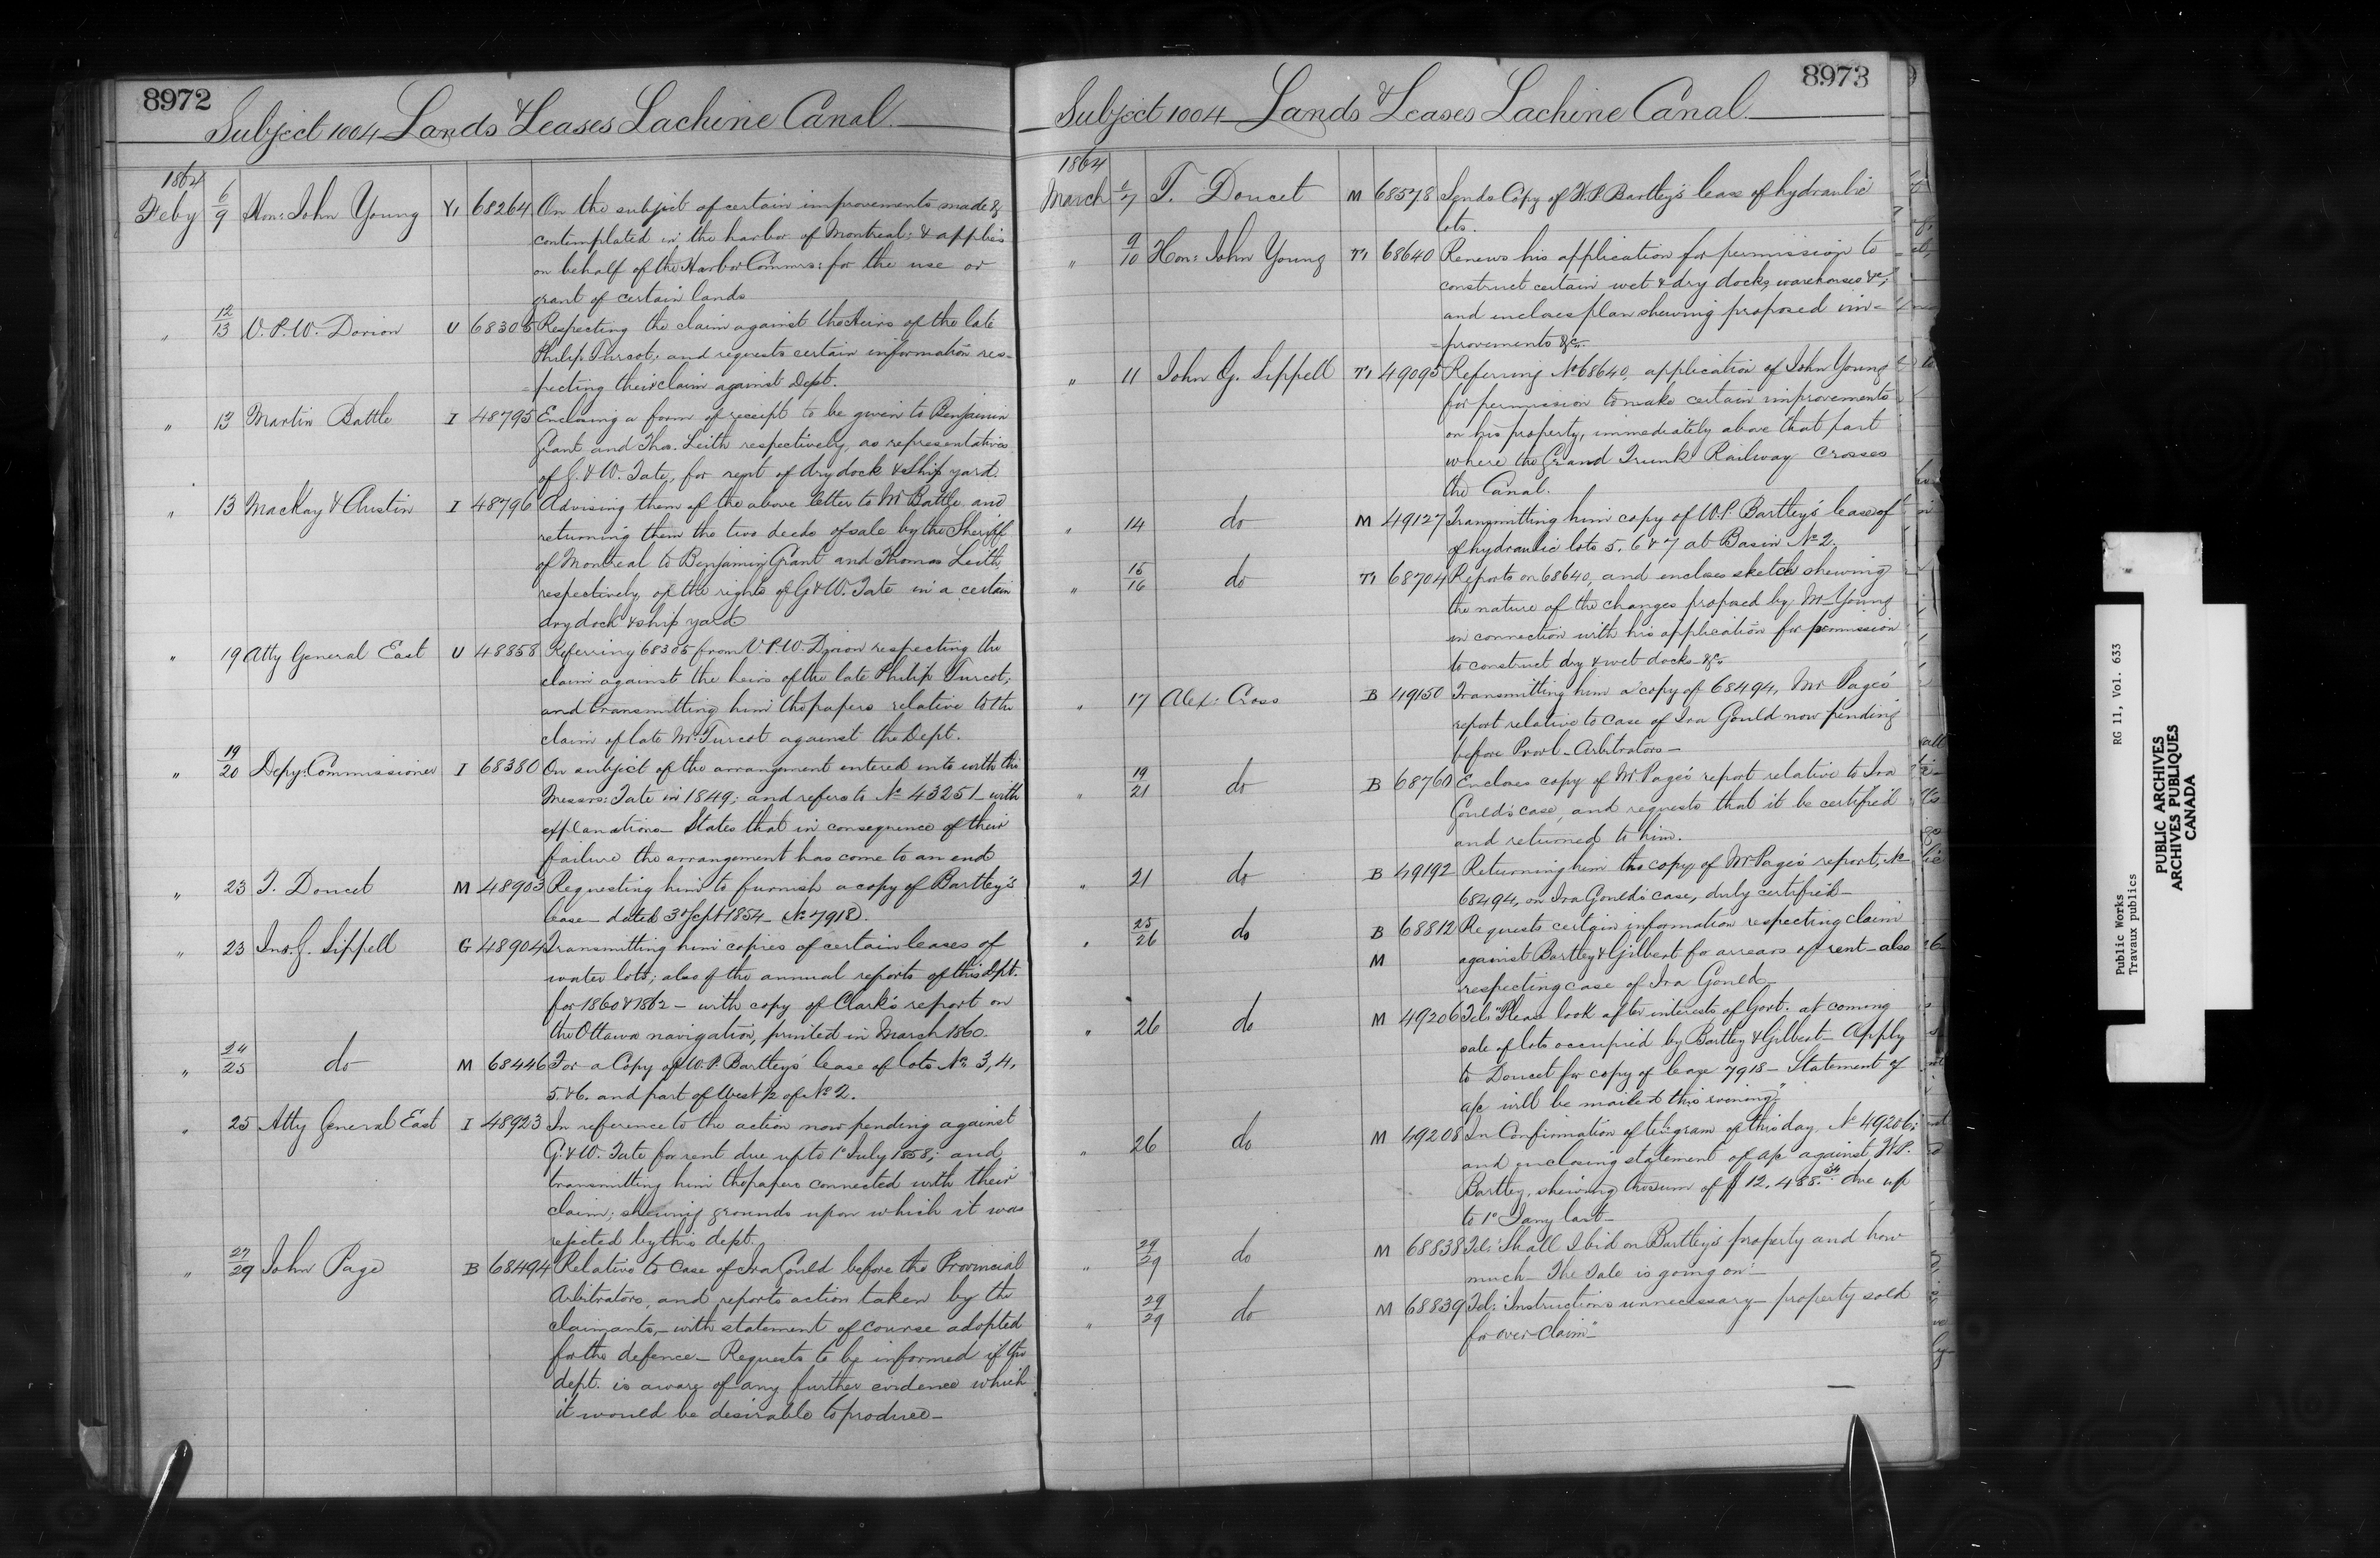 8972
Subject 1004 Lands & Leases Lachine Canal.
1864
Feby 6/9 Hon: John Young Y1 68264 On the subject of certain improvements made &
contemplated in the harbor of Montreal: & applies
on behalf of the Harbor Commrs: for the use or
grant of certain lands
" 12/13 V. P. W. Dorion U 68305 Respecting the claim against the Heirs of the late
Philip Turcot; and requests certain information res-
=pecting their claim against Dept.
" 13 Martin Battle I 48795 Enclosing a form of receipt to be given to Benjamin
Grant and Thos. Leith respectively, as representatives
of G. & W. Tate, for rent of dry dock & Ship yard.
" 13 MacKay & Austin I 48796 Advising them of the above letter to Mr Battle and
returning them the two deeds of sale by the Sheriff
of Montreal to Benjamin Grant and Thomas Leith
respectively of the rights of G & W. Tate in a certain
dry dock & ship yard
" 19 Atty General East U 48858 Referring 68305 from V. P. W. Dorion respecting the
claim against the heirs of the late Philip Turcot;
and transmitting him the papers relative to the
claim of late Mr. Turcot against the Dept.
" 19/20 Depy: Commissioner I 68380 On subject of the arrangement entered into with the
Messrs: Tate in 1849; and refers to No 43251 with
explanations— States that in consequence of their
failure the arrangement has come to an end
" 23 T. Doucet M 48903 Requesting him to furnish a copy of Bartley's
lease— dated 3d Sept 1854— No 7918.
" 23 Jno. G. Sippell G 48904 Transmitting him copies of certain leases of
water lots; also of the annual reports of this dept.
for 1860 & 1862 — with copy of Clark's report on
the Ottawa navigation, printed in March 1860.
" 24/25 do M 68446 For a Copy of W. P. Bartley's lease of lots No 3, 4,
5 & 6. and part of West 1/2 of No 2.
" 25 Atty General East I 48923 In reference to the action now pending against
G. & W. Tate for rent due up to 1st July 1858; and
transmitting him the papers connected with their
claim; shewing grounds upon which it was
rejected by this dept.
" 27/29 John Page B 68494 Relative to Case of Ira Gould before the Provincial
Arbitrators, and reports action taken by the
claimants,— with statement of course adopted
for the defence— Requests to be informed if the
dept. is aware of any further evidence which
it would be desirable to produce—
8973
Subject 1004 Lands & Leases Lachine Canal.
1864
March 1/7 T. Doucet M 68578 Sends Copy of W. P. Bartley's lease of hydraulic
lots.
" 9/10 Hon: John Young Y1 68640 Renews his application for permission to
construct certain wet & dry docks, warehouses &c;
and encloses plan shewing proposed im=
=provements &c.
" 11 John G. Sippell Y1 49095 Referring No 68640, application of John Young
for permission to make certain improvements
on his property, immediately above that part
where the Grand Trunk Railway Crosses
the Canal.
" 14 do M 49127 Transmitting him copy of W. P. Bartley's lease of
of hydraulic lots 5. 6 & 7 at Basin No 2.
" 15/16 do Y1 68704 Reports on 68640, and encloses sketch shewing
the nature of the changes proposed by Mr Young
in connection with his application for permission
to construct dry & wet docks &c.
" 17 Alex: Cross B 49150 Transmitting him a copy of 68494, Mr Page's
report relative to case of Ira Gould now pending
before Provl— Arbitrators—
" 19/21 do B 68760 Encloses copy of Mr Page's report relative to Ira
Gould's case, and requests that it be certified
and returned to him.
" 21 do B 49192 Returning him the copy of Mr Page's report, No
68494, on Ira Gould's case, duly certified—
" 25/26 do B 68812 Requests certain information respecting claim
M against Bartley & Gilbert for arrears of rent— also
respecting case of Ira Gould
" 26 do M 49206 Tel: "Please look after interests of Govt. at coming
sale of lots occupied by Bartley & Gilbert— Apply
to Doucet for copy of lease 7918— Statement of
a/c will be mailed this evening"
" 26 do M 49208 In Confirmation of telegram of this day, No 49206;
and enclosing statement of a/c against W. P.
Bartley, shewing the sum of $12,488.34 due up
to 1st Jany last—
" 29/29 do M 68838 Tel: "Shall I bid on Bartley's property and how
much— The Sale is going on"—
" 29/29 do M 68839 Tel: "Instructions unnecessary— property sold
for over claim"—
Public Works
Travaux publics
RG 11, Vol. 633
PUBLIC ARCHIVES
ARCHIVES PUBLIQUES
CANADA